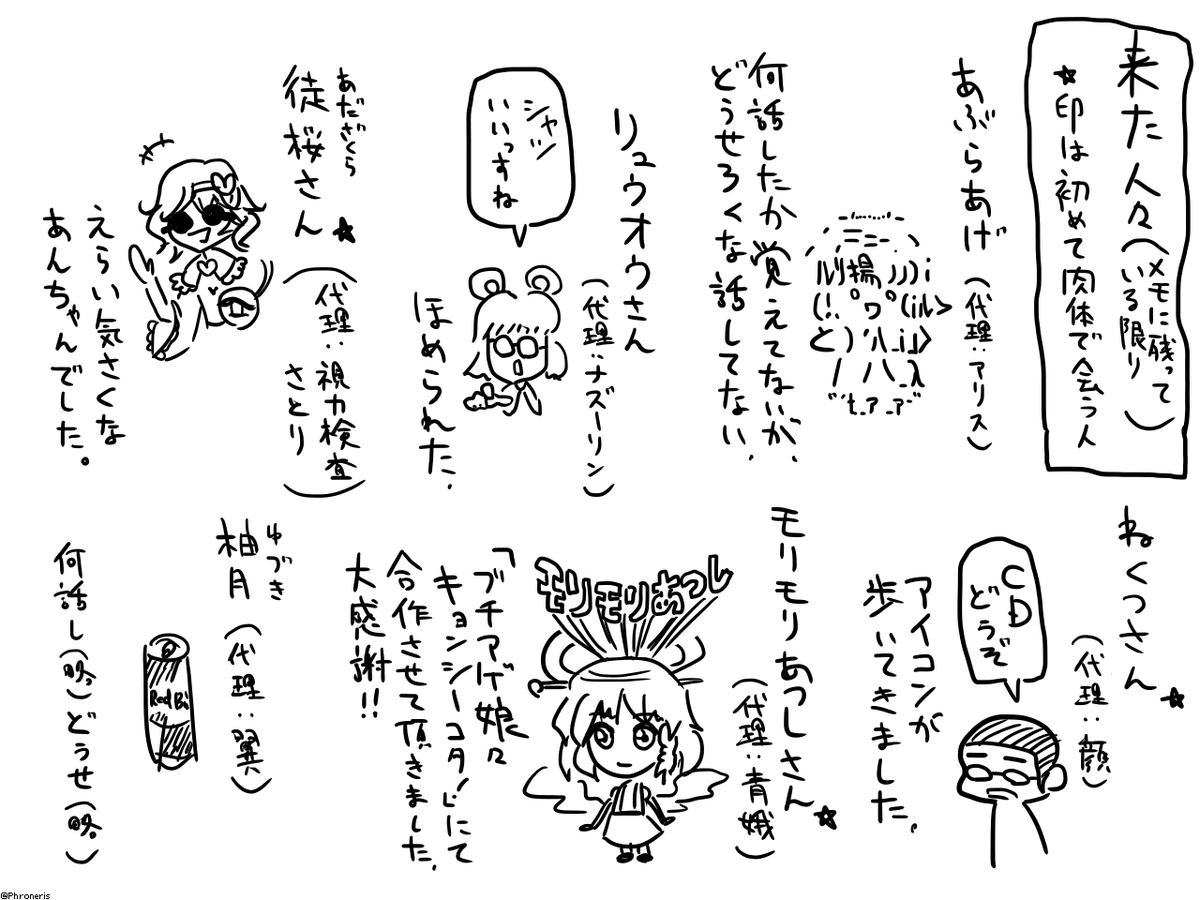 来た人々(メモに残って
いる限り)
☆印は初めて肉体で会う人
あぶらあげ(代理:アリス)
揚
何話したか覚えてないが、
どうせろくな話してない。
リュウオウさん
(代理:ナズーリン)
シャツ
いいっすね
ほめられた。
あだざくら
徒桜さん☆
(代理:視力検査
さとり)
えらい気さくな
あんちゃんでした。
ねくつさん☆
(代理:顔)
CD
どうぞ
アイコンが
歩いてきました。
モリモリあつしさん☆
(代理:青娥)
モリモリあつし
「ブチアゲ娘々
キョンシーコタ!」にて
合作させて頂きました。
大感謝!!
ゆづき
柚月(代理:翼)
Red Bu
何話し(略。)どうせ(略。)
@Phroneris